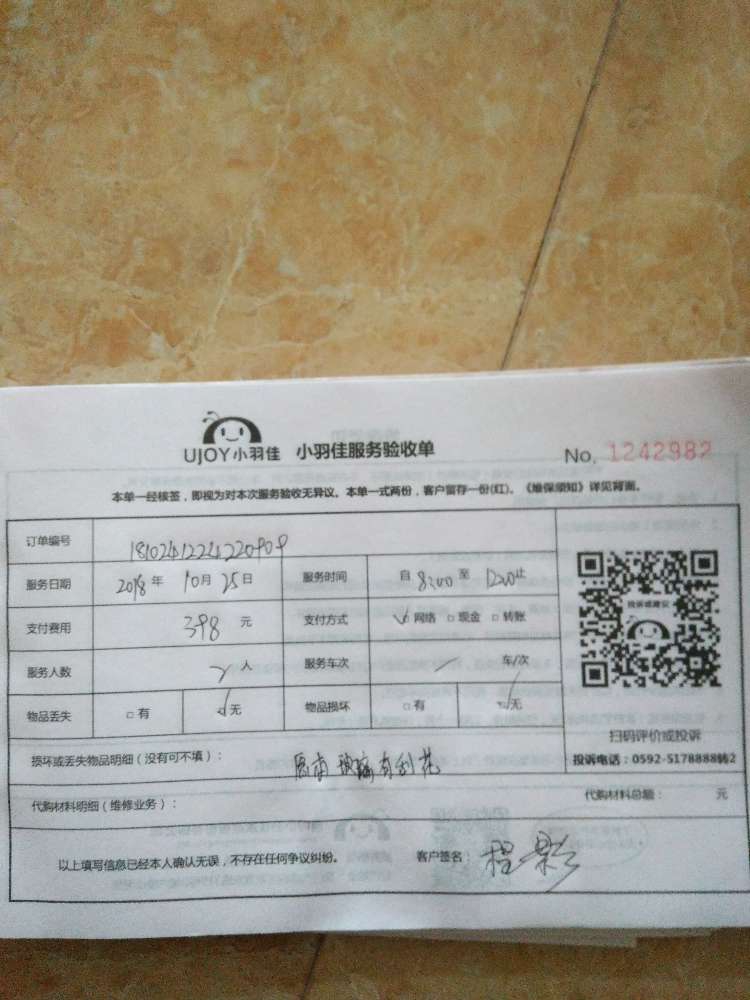 UJOY小羽佳 小羽佳服务验收单 No. 1242982
本单一经核签，即视为对本次服务验收无异议。本单一式两份，客户留存一份(红)。《维保须知》详见背面。
订单编号 1810241224220909
服务日期 2018年 10月 25日 服务时间 自 8:00 至 1200止
支付费用 398 元 支付方式 ☑网络 □现金 □转账
服务人数 2 人 服务车次 一 车/次
物品丢失 □有 ☑无 物品损坏 □有 ☑无
扫码评价或投诉
投诉电话：0592-5178888转2
投诉或建议
损坏或丢失物品明细（没有可不填）： 原有玻璃有刮花
代购材料明细（维修业务）： 代购材料总额： 元
以上填写信息已经本人确认无误，不存在任何争议纠纷。 客户签名： 程